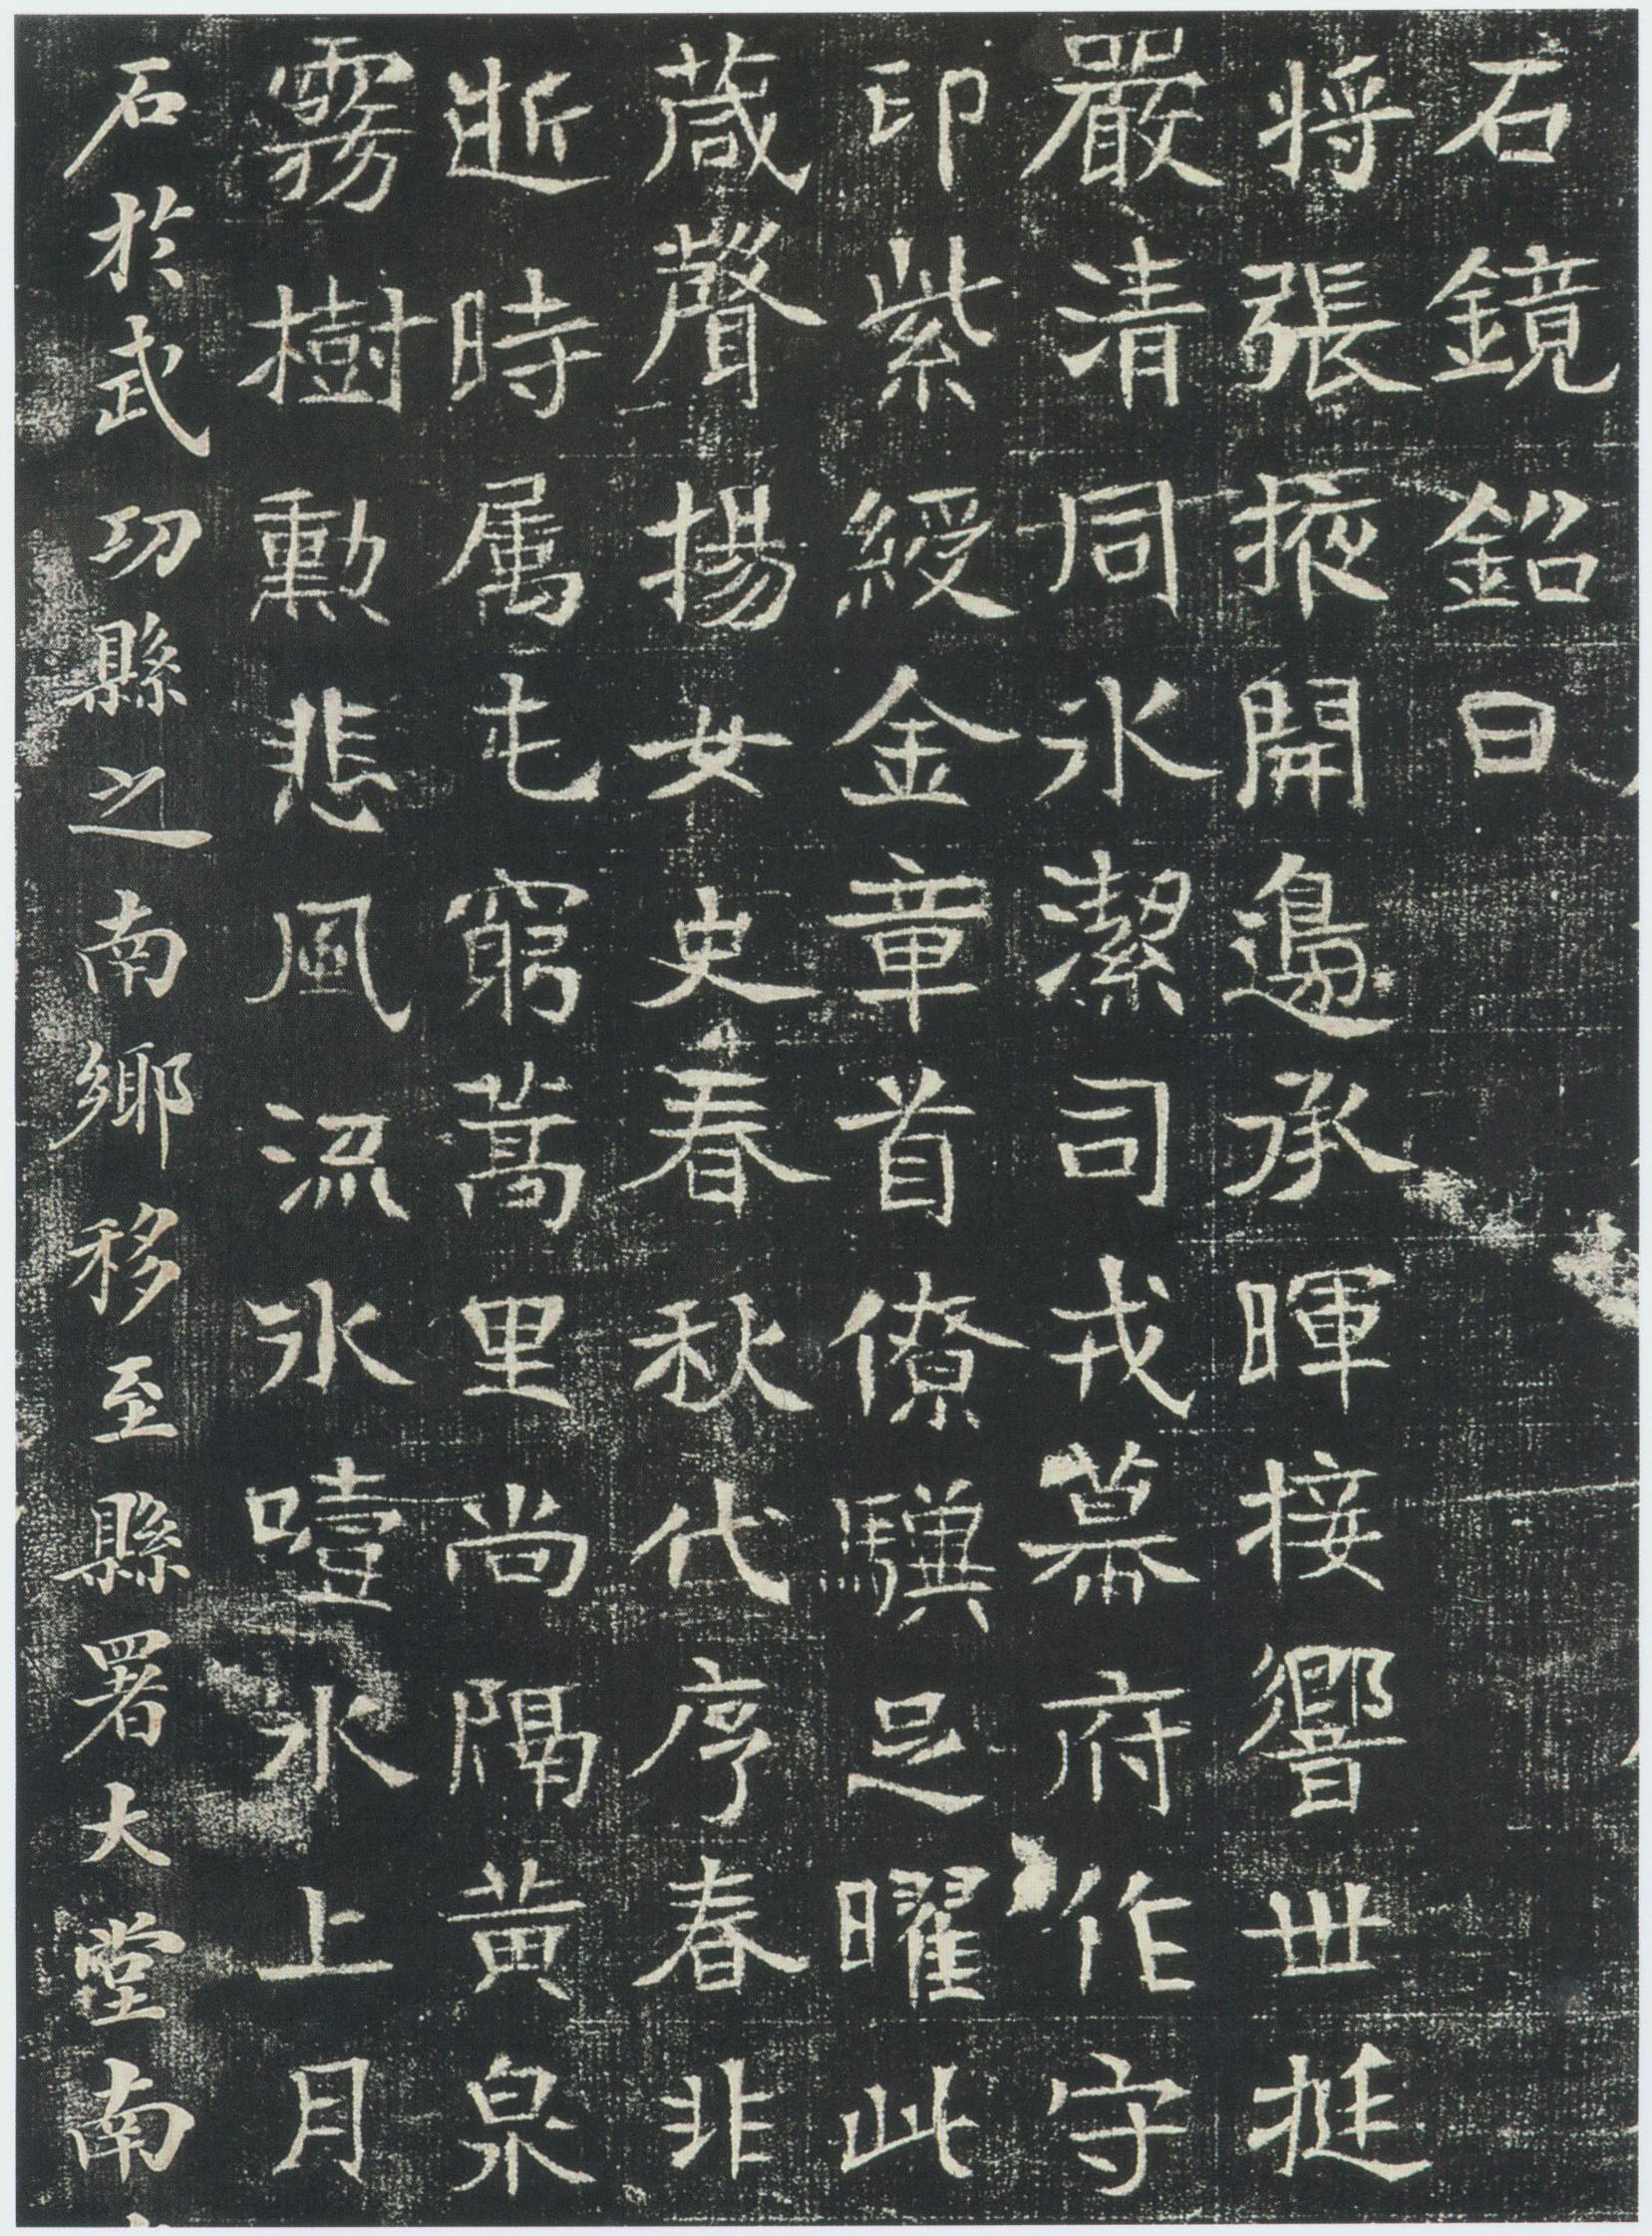 石鏡銘曰
將張掖開邊承暉接響世挺
嚴清同氷潔司戎幕府作守
印紫綬金章首僚驥足曜此
葴聲揚女史春秋代序春非
逝時屬屯窮蒿里尚隔黃泉
霧樹勳悲風流氷噎水上月
石於武功縣之南鄉移至縣署大堂南